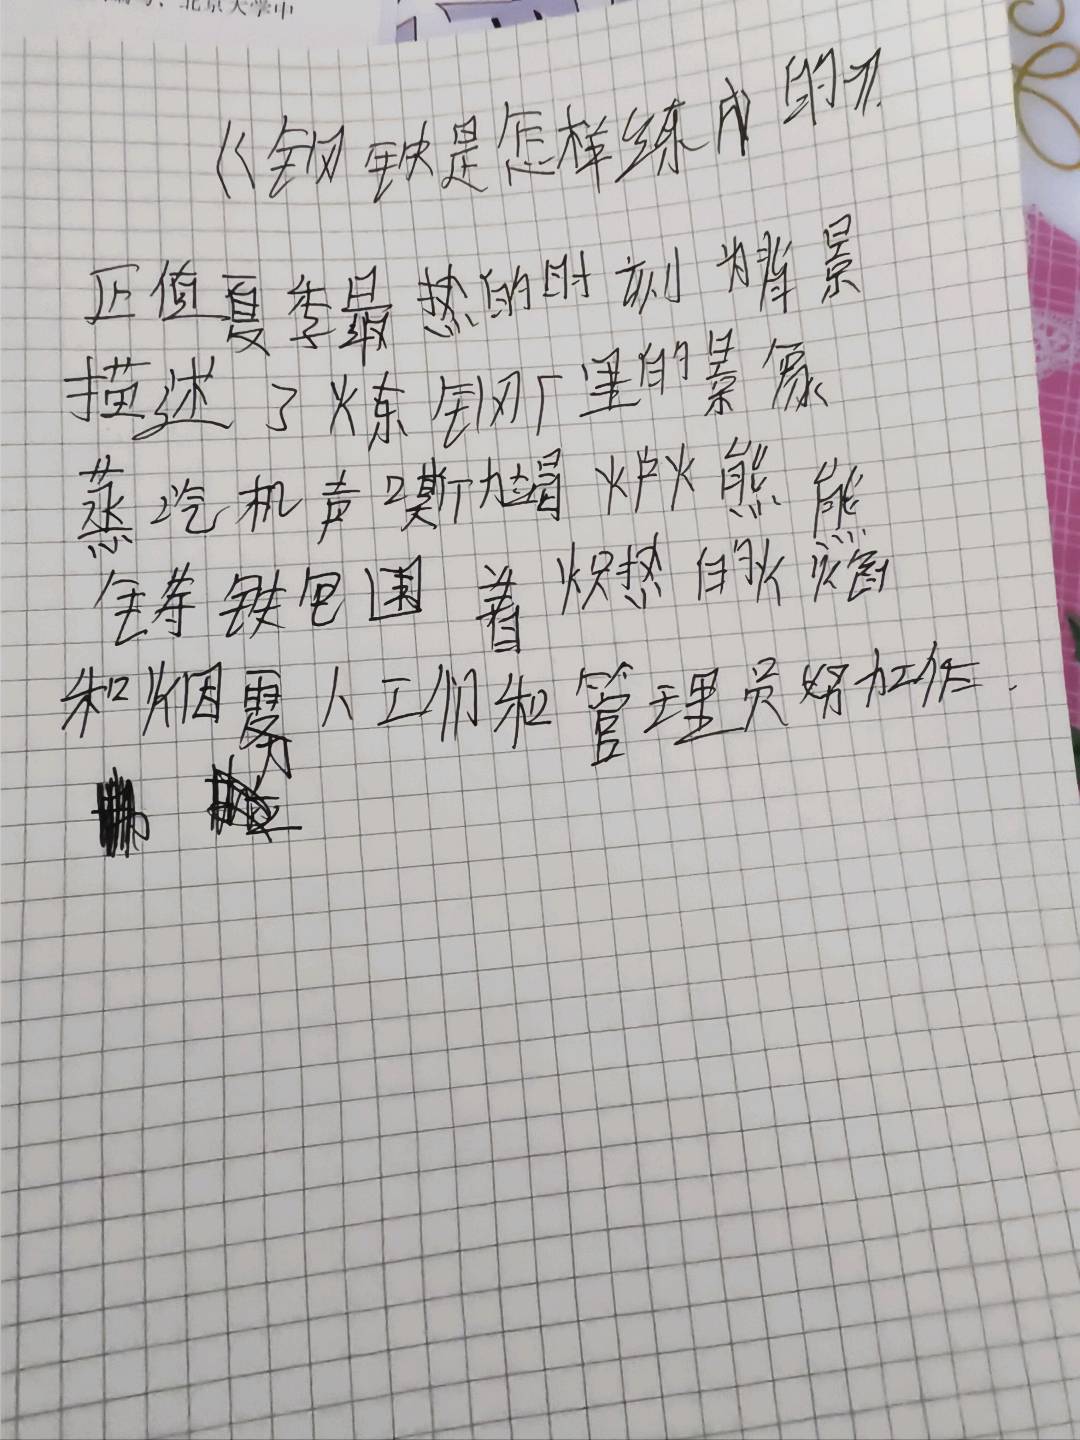 北京大学中
《钢铁是怎样练成的》
正值夏季最热的时刻为背景
描述了炼钢厂里的景象
蒸汽机声嘶力竭炉火熊熊
铸铁包围着炽热的火焰
和烟雾人工们和管理员努力工作.